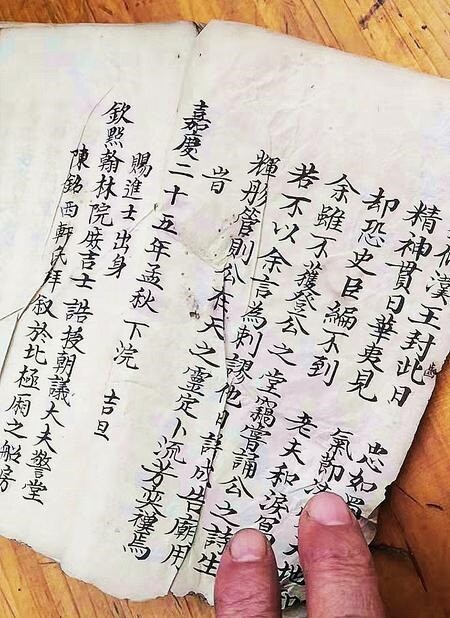 漢王封此日 忠如
精神貫日華夷見 氣節 天地
却恐史臣編不到 老夫和淚
余雖不獲登公之堂竊嘗誦公之詩生
若不以余言為刺謬他日詩成告廟用
輝彤管則公在天之靈定卜流芳奕禩焉
旹
嘉慶二十五年孟秋下浣 吉旦
賜進士出身
欽點翰林院庶吉士 誥授朝議大夫警堂
陳銘西軒氏拜敘於北極廟之船房